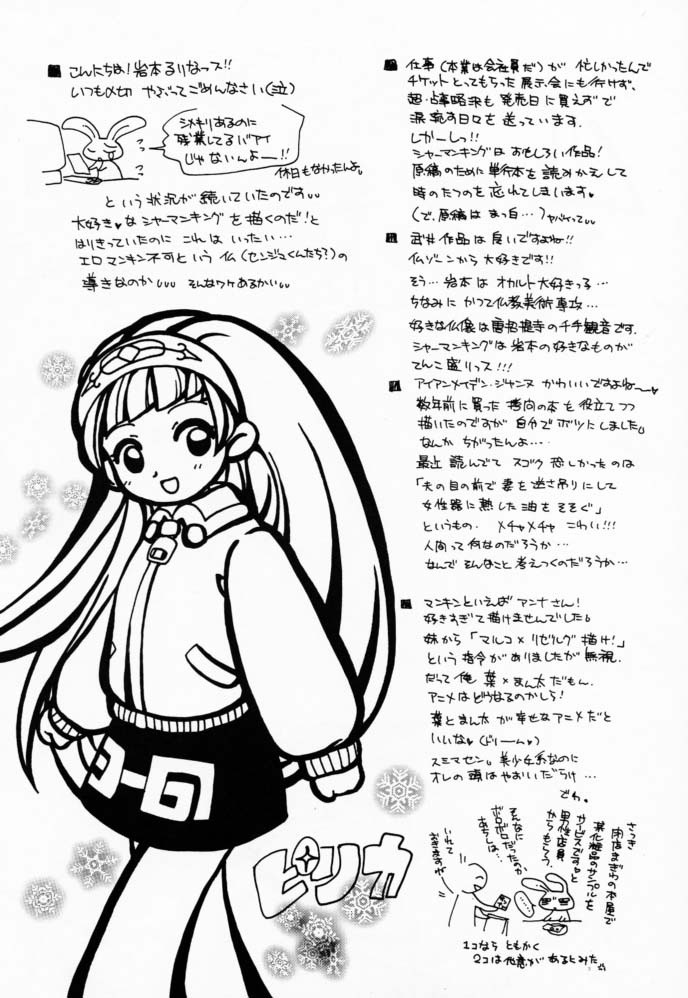 こんにちは!岩本るりなっス!!
いつも〆切 やぶってごめんなさい(泣)
シメキリあるのに
残業してるバアイ
じゃないんよー――!!
休日もなかったんよ。
という状況が続いていたのです
大好き♥なシャーマンキングを描くのだ!と
はりきっていたのに これはいったい…
エロマンキン不可という仏(センジュくんたち?)の
導きなのか そんなワケあるかい
仕事(本業は会社員だ)が 忙しかったんで
チケットとってもらった展示会にも行けず、
超・占事略決も発売日に買えずで
涙 乾す日々を送っています.
しかーしっ!!
シャーマンキングはおもしろい作品!
原稿のために単行本を読みかえして
時のたつのを忘れてしまいます♥
(で、原稿は まっ白…)ヤバイって
武井作品は良いですよね!!
仏ゾーンから大好きです!!
そう…岩本はオカルト大好きっ子…
ちなみに かつて仏教美術専攻…
好きな仏像は唐招提寺の千手観音です.
シャーマンキングは岩本の好きなものが
てんこ盛りっス!!!
アイアンメイデン・ジャンヌ かわいいですよね〜♥
数年前に買った 拷問の本を役立てつつ
描いたのですが自分でボツにしました。
なんか ちがったんよ…
最近 読んでて スゴク 恐しかったのは
「夫の目の前で妻を逆さ吊りにして
女性器に熱した油をそそぐ」
というもの. メチャメチャ こわい!!!
人間って何なのだろうか…
なんで そんなこと考えつくのだろうか…
マンキンといえばアンナさん!
好きすぎて描けませんでした。
妹から「マルコ×リゼルグ描け!」
という指令がありましたが無視.
だって俺 葉×まん太だもん.
アニメはどうなるのかしら!
葉とまん太が幸せなアニメだと
いいな♥(ドリーム♥)
スミマセン。美少女系なのに
オレの頭はやおいだらけ…
でわ。
さっき
閉店まぎわの本屋で
某化粧品のサンプルを
サービスですと
男性店員
からもらう.
そんなに
ボロボロだったのか
あちしは…
いれて
おきますが
1コなら ともかく
2コは他意があるとみた.
ピリカ